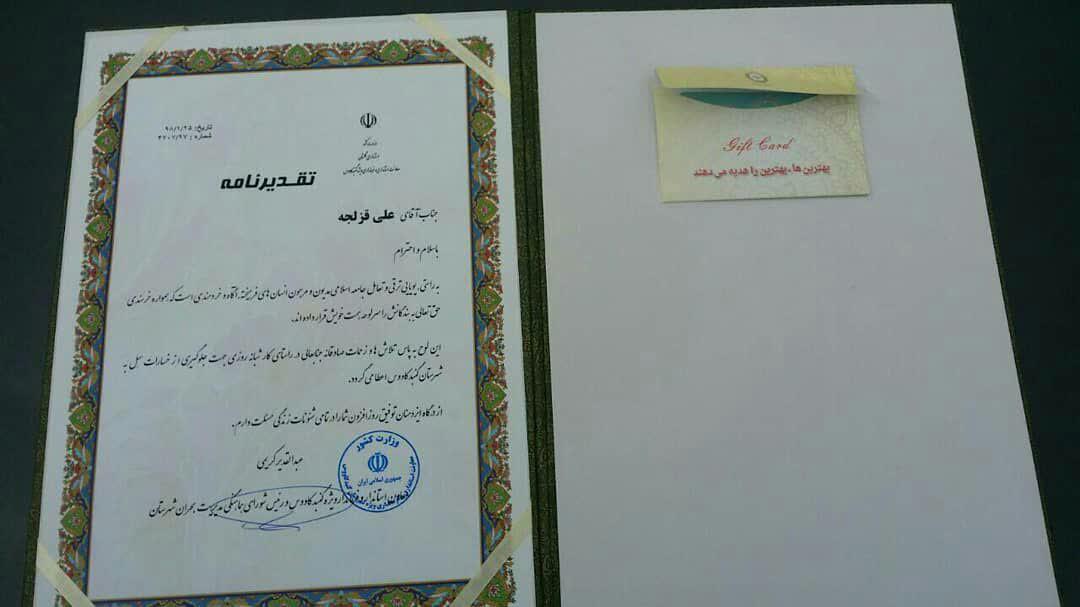 تاریخ: ۹۸/۱/۲۵
شماره: ۳۷۰۷/۹۷
وزارت کشور
استانداری گلستان
معاونت استانداری و فرمانداری ویژه گنبدکاووس
تقدیرنامه
جناب آقای علی قزلجه
باسلام و احترام
به راستی، پویایی ترقی و تعامل جامعه اسلامی مدیون و مرهون انسان های فرهیخته، آگاه و خردمندی است که همواره خرسندی
حق تعالی به بندگانش را سرلوحه همت خویش قرار داده اند.
این لوح به پاس تلاش ها و زحمات صادقانه جنابعالی در راستای کار شبانه روزی جهت جلوگیری از خسارات سیل به
شهرستان گنبدکاووس اعطا می گردد.
از درگاه ایزد منان توفیق روز افزون شما را در تمامی شئونات زندگی مسئلت دارم.
عبدالقدیر کریمی
معاون استاندار و فرماندار ویژه گنبدکاووس و رئیس شورای هماهنگی مدیریت بحران شهرستان
وزارت کشور
جمهوری اسلامی ایران
Gift Card
بهترین ها، بهترین را هدیه می دهند